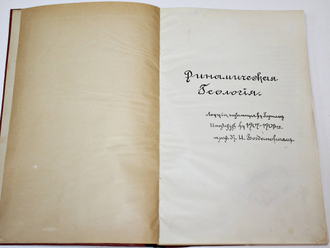 Динамическая
Геологія.
Лекціи, читанныя въ Горномъ
Институтѣ въ 1907-1908 г.
проф. К. И. Богдановичемъ.